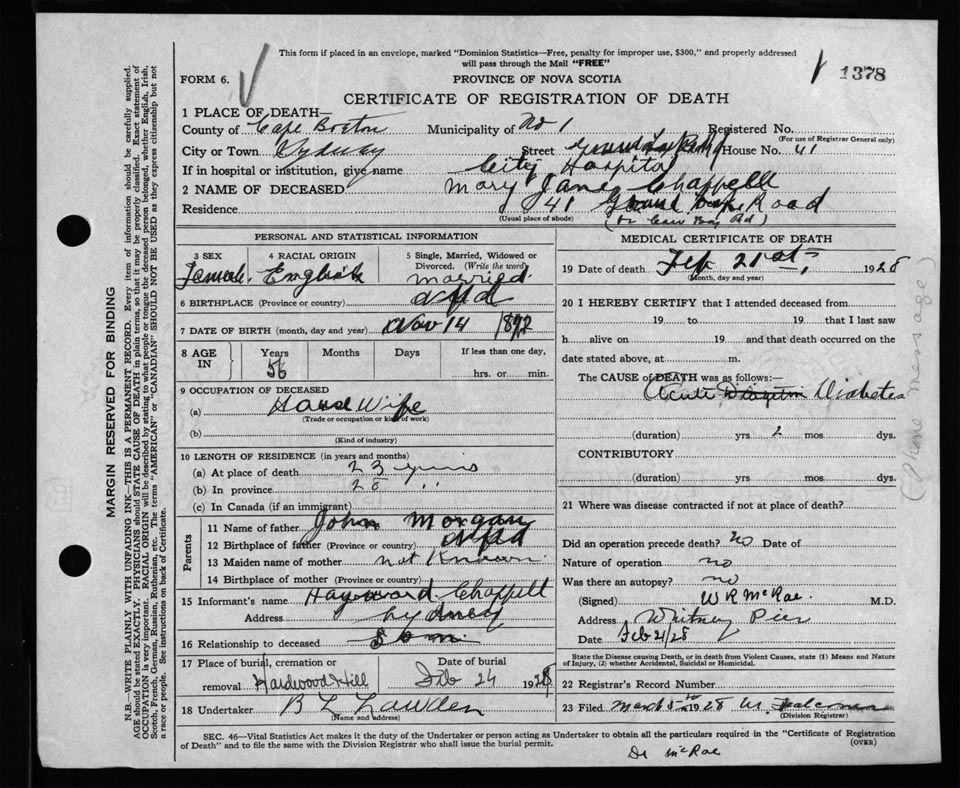 This form if placed in an envelope, marked "Dominion Statistics—Free, penalty for improper use, $300," and properly addressed
will pass through the Mail "FREE"
FORM 6.
PROVINCE OF NOVA SCOTIA
1378
CERTIFICATE OF REGISTRATION OF DEATH
1 PLACE OF DEATH—
County of Cape Breton Municipality of No 1 Registered No.
(For use of Registrar General only)
City or Town Sydney Street Grand Lake Rd House No. 41
If in hospital or institution, give name City Hospital
2 NAME OF DECEASED Mary Jane Chappell
Residence 41 Grand Lake Road
(Usual place of abode) (or Cow Bay Rd)
PERSONAL AND STATISTICAL INFORMATION
3 SEX 4 RACIAL ORIGIN 5 Single, Married, Widowed or
Divorced. (Write the word)
Female English married
6 BIRTHPLACE (Province or country) Nfld
7 DATE OF BIRTH (month, day and year) Nov 14 1872
8 AGE IN Years Months Days If less than one day,
56 hrs. or min.
9 OCCUPATION OF DECEASED
(a) House Wife
(Trade or occupation or kind of work)
(b)
(Kind of industry)
10 LENGTH OF RESIDENCE (in years and months)
(a) At place of death 23 years
(b) In province 28 "
(c) In Canada (if an immigrant)
Parents
11 Name of father John Morgan
12 Birthplace of father (Province or country) Nfld
13 Maiden name of mother not Known
14 Birthplace of mother (Province or country)
15 Informant's name Hayward Chappell
Address Sydney
16 Relationship to deceased Son
17 Place of burial, cremation or Date of burial
removal Hardwood Hill Feb 24 1928
18 Undertaker B L Lawden
(Name and address)
MEDICAL CERTIFICATE OF DEATH
19 Date of death Feb 21st, 1928
(Month, day and year)
20 I HEREBY CERTIFY that I attended deceased from
19 to 19 that I last saw
h alive on 19 and that death occurred on the
date stated above, at m.
The CAUSE of DEATH was as follows:—
Acute Diabetes
(duration) yrs 2 mos dys.
CONTRIBUTORY
(duration) yrs. mos. dys.
21 Where was disease contracted if not at place of death?
Did an operation precede death? no Date of
Nature of operation no
Was there an autopsy? no
(Signed) W R McRae. M.D.
Address Whitney Pier
Date Feb 21/28
State the Disease causing Death, or in death from Violent Causes, state (1) Means and Nature
of Injury, (2) whether Accidental, Suicidal or Homicidal.
22 Registrar's Record Number
23 Filed March 5 1928
(Division Registrar)
SEC. 46—Vital Statistics Act makes it the duty of the Undertaker or person acting as Undertaker to obtain all the particulars required in the "Certificate of Registration
of Death" and to file the same with the Division Registrar who shall issue the burial permit. (OVER)
Dr McRae
(Phone message)
MARGIN RESERVED FOR BINDING
N.B.—WRITE PLAINLY WITH UNFADING INK—THIS IS A PERMANENT RECORD. Every item of information should be carefully supplied.
AGE should be stated EXACTLY. PHYSICIANS should STATE CAUSE OF DEATH in plain terms, so that it may be properly classified. Exact statement of
OCCUPATION is very important. RACIAL ORIGIN will be described by stating to what people or tongue the deceased person belonged, whether English, Irish,
Scotch, French, German, Russian, Ruthenian, etc. The terms "AMERICAN" or "CANADIAN" SHOULD NOT BE USED as they express citizenship but not
a race or people. See instructions on back of Certificate.